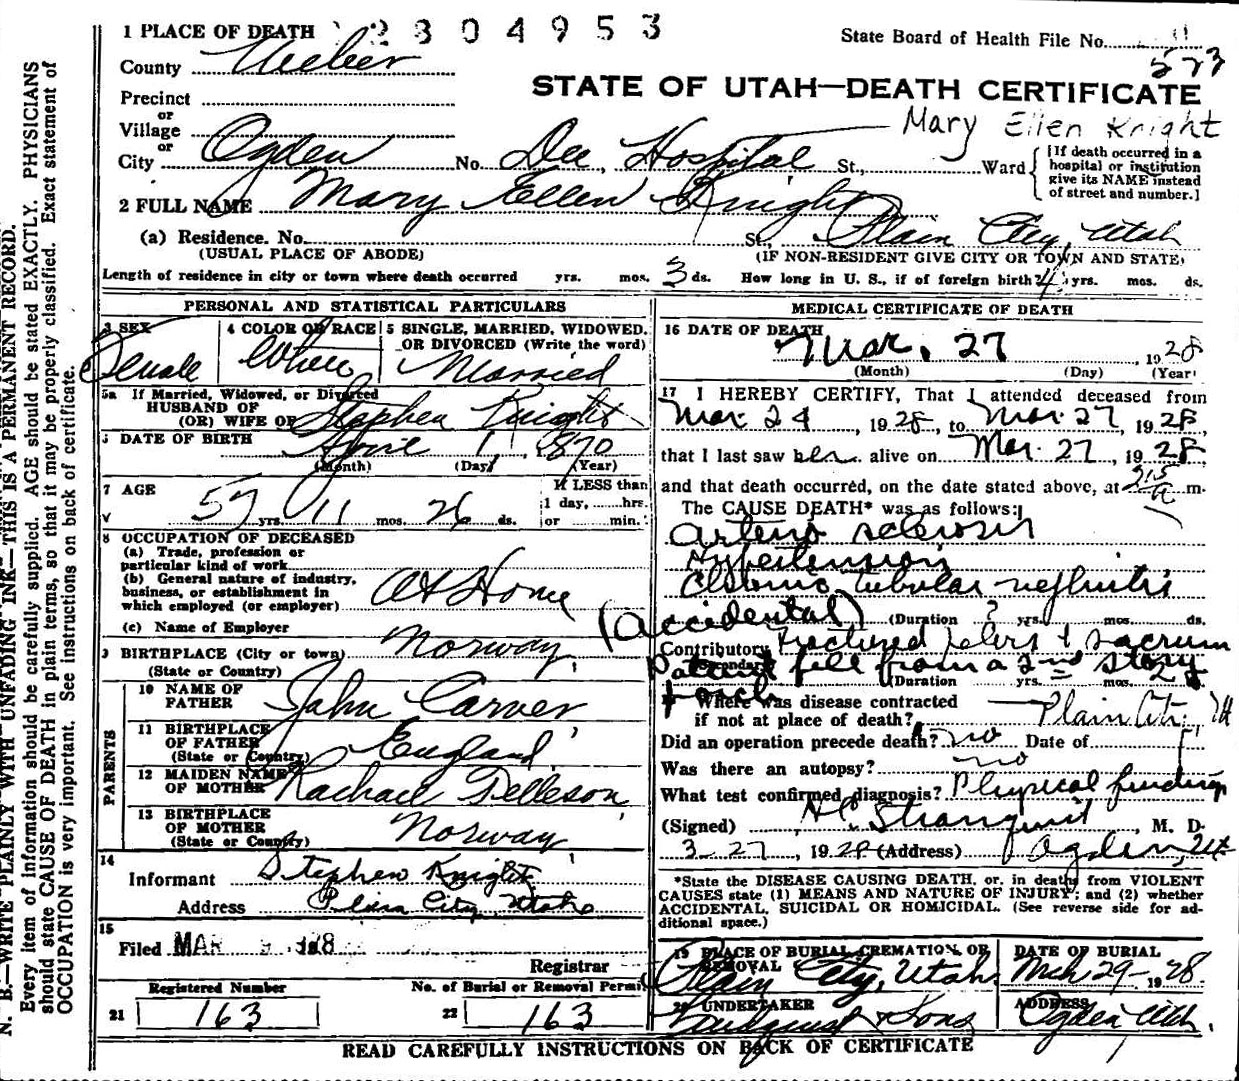 1 PLACE OF DEATH 2304953
State Board of Health File No. 573
County Weber
STATE OF UTAH—DEATH CERTIFICATE
Precinct
or
Village
Mary Ellen Knight
or
City Ogden No. Dee Hospital St., Ward
[If death occurred in a hospital or institution give its NAME instead of street and number.]
2 FULL NAME Mary Ellen Knight
(a) Residence. No. St., Plain City, Utah
(USUAL PLACE OF ABODE) (IF NON-RESIDENT GIVE CITY OR TOWN AND STATE)
Length of residence in city or town where death occurred yrs. mos. 3 ds. How long in U. S., if of foreign birth? yrs. mos. ds.
PERSONAL AND STATISTICAL PARTICULARS
3 SEX Female
4 COLOR OR RACE White
5 SINGLE, MARRIED, WIDOWED, OR DIVORCED (Write the word) Married
5a If Married, Widowed, or Divorced
HUSBAND OF
(OR) WIFE OF Stephen Knight
DATE OF BIRTH April 1, 1870
(Month) (Day) (Year)
7 AGE 57 yrs. 11 mos. 26 ds.
If LESS than 1 day, hrs. or min.
8 OCCUPATION OF DECEASED
(a) Trade, profession or
particular kind of work
(b) General nature of industry,
business, or establishment in
which employed (or employer) At Home
(c) Name of Employer
9 BIRTHPLACE (City or town) Norway
(State or Country)
PARENTS
10 NAME OF FATHER John Carver
11 BIRTHPLACE OF FATHER (State or Country) England
12 MAIDEN NAME OF MOTHER Rachael Telleson
13 BIRTHPLACE OF MOTHER (State or Country) Norway
14
Informant Stephen Knight
Address Plain City, Utah
15
Filed MAR 1928
Registrar
Registered Number No. of Burial or Removal Permit
21 163 22 163
MEDICAL CERTIFICATE OF DEATH
16 DATE OF DEATH Mar. 27, 1928
(Month) (Day) (Year)
17 I HEREBY CERTIFY, That I attended deceased from
Mar. 24, 1928, to Mar. 27, 1928,
that I last saw her alive on Mar. 27, 1928,
and that death occurred, on the date stated above, at 2:15 A m.
The CAUSE DEATH* was as follows:
Arterio sclerosis
Hypertension
Chronic tubular nephritis
(Duration ? yrs. mos. ds.
(Accidental)
Contributory Fractured pelvis + sacrum
Patient fell from a 2nd story
porch
(Duration yrs. mos. ds.
Where was disease contracted
if not at place of death? Plain City
Did an operation precede death? no Date of
Was there an autopsy? no
What test confirmed diagnosis? Physical findings
(Signed) , M. D.
3-27, 1928 (Address) Ogden, Ut
*State the DISEASE CAUSING DEATH, or, in deaths from VIOLENT
CAUSES state (1) MEANS AND NATURE OF INJURY; and (2) whether
ACCIDENTAL, SUICIDAL OR HOMICIDAL. (See reverse side for ad-
ditional space.)
19 PLACE OF BURIAL, CREMATION, OR REMOVAL Plain City, Utah.
DATE OF BURIAL Mch 29- 1928
20 UNDERTAKER Lindquist & Sons
ADDRESS Ogden Utah.
READ CAREFULLY INSTRUCTIONS ON BACK OF CERTIFICATE
N. B.—WRITE PLAINLY WITH UNFADING INK—THIS IS A PERMANENT RECORD.
Every item of information should be carefully supplied. AGE should be stated EXACTLY. PHYSICIANS
should state CAUSE OF DEATH in plain terms, so that it may be properly classified. Exact statement of
OCCUPATION is very important. See instructions on back of certificate.